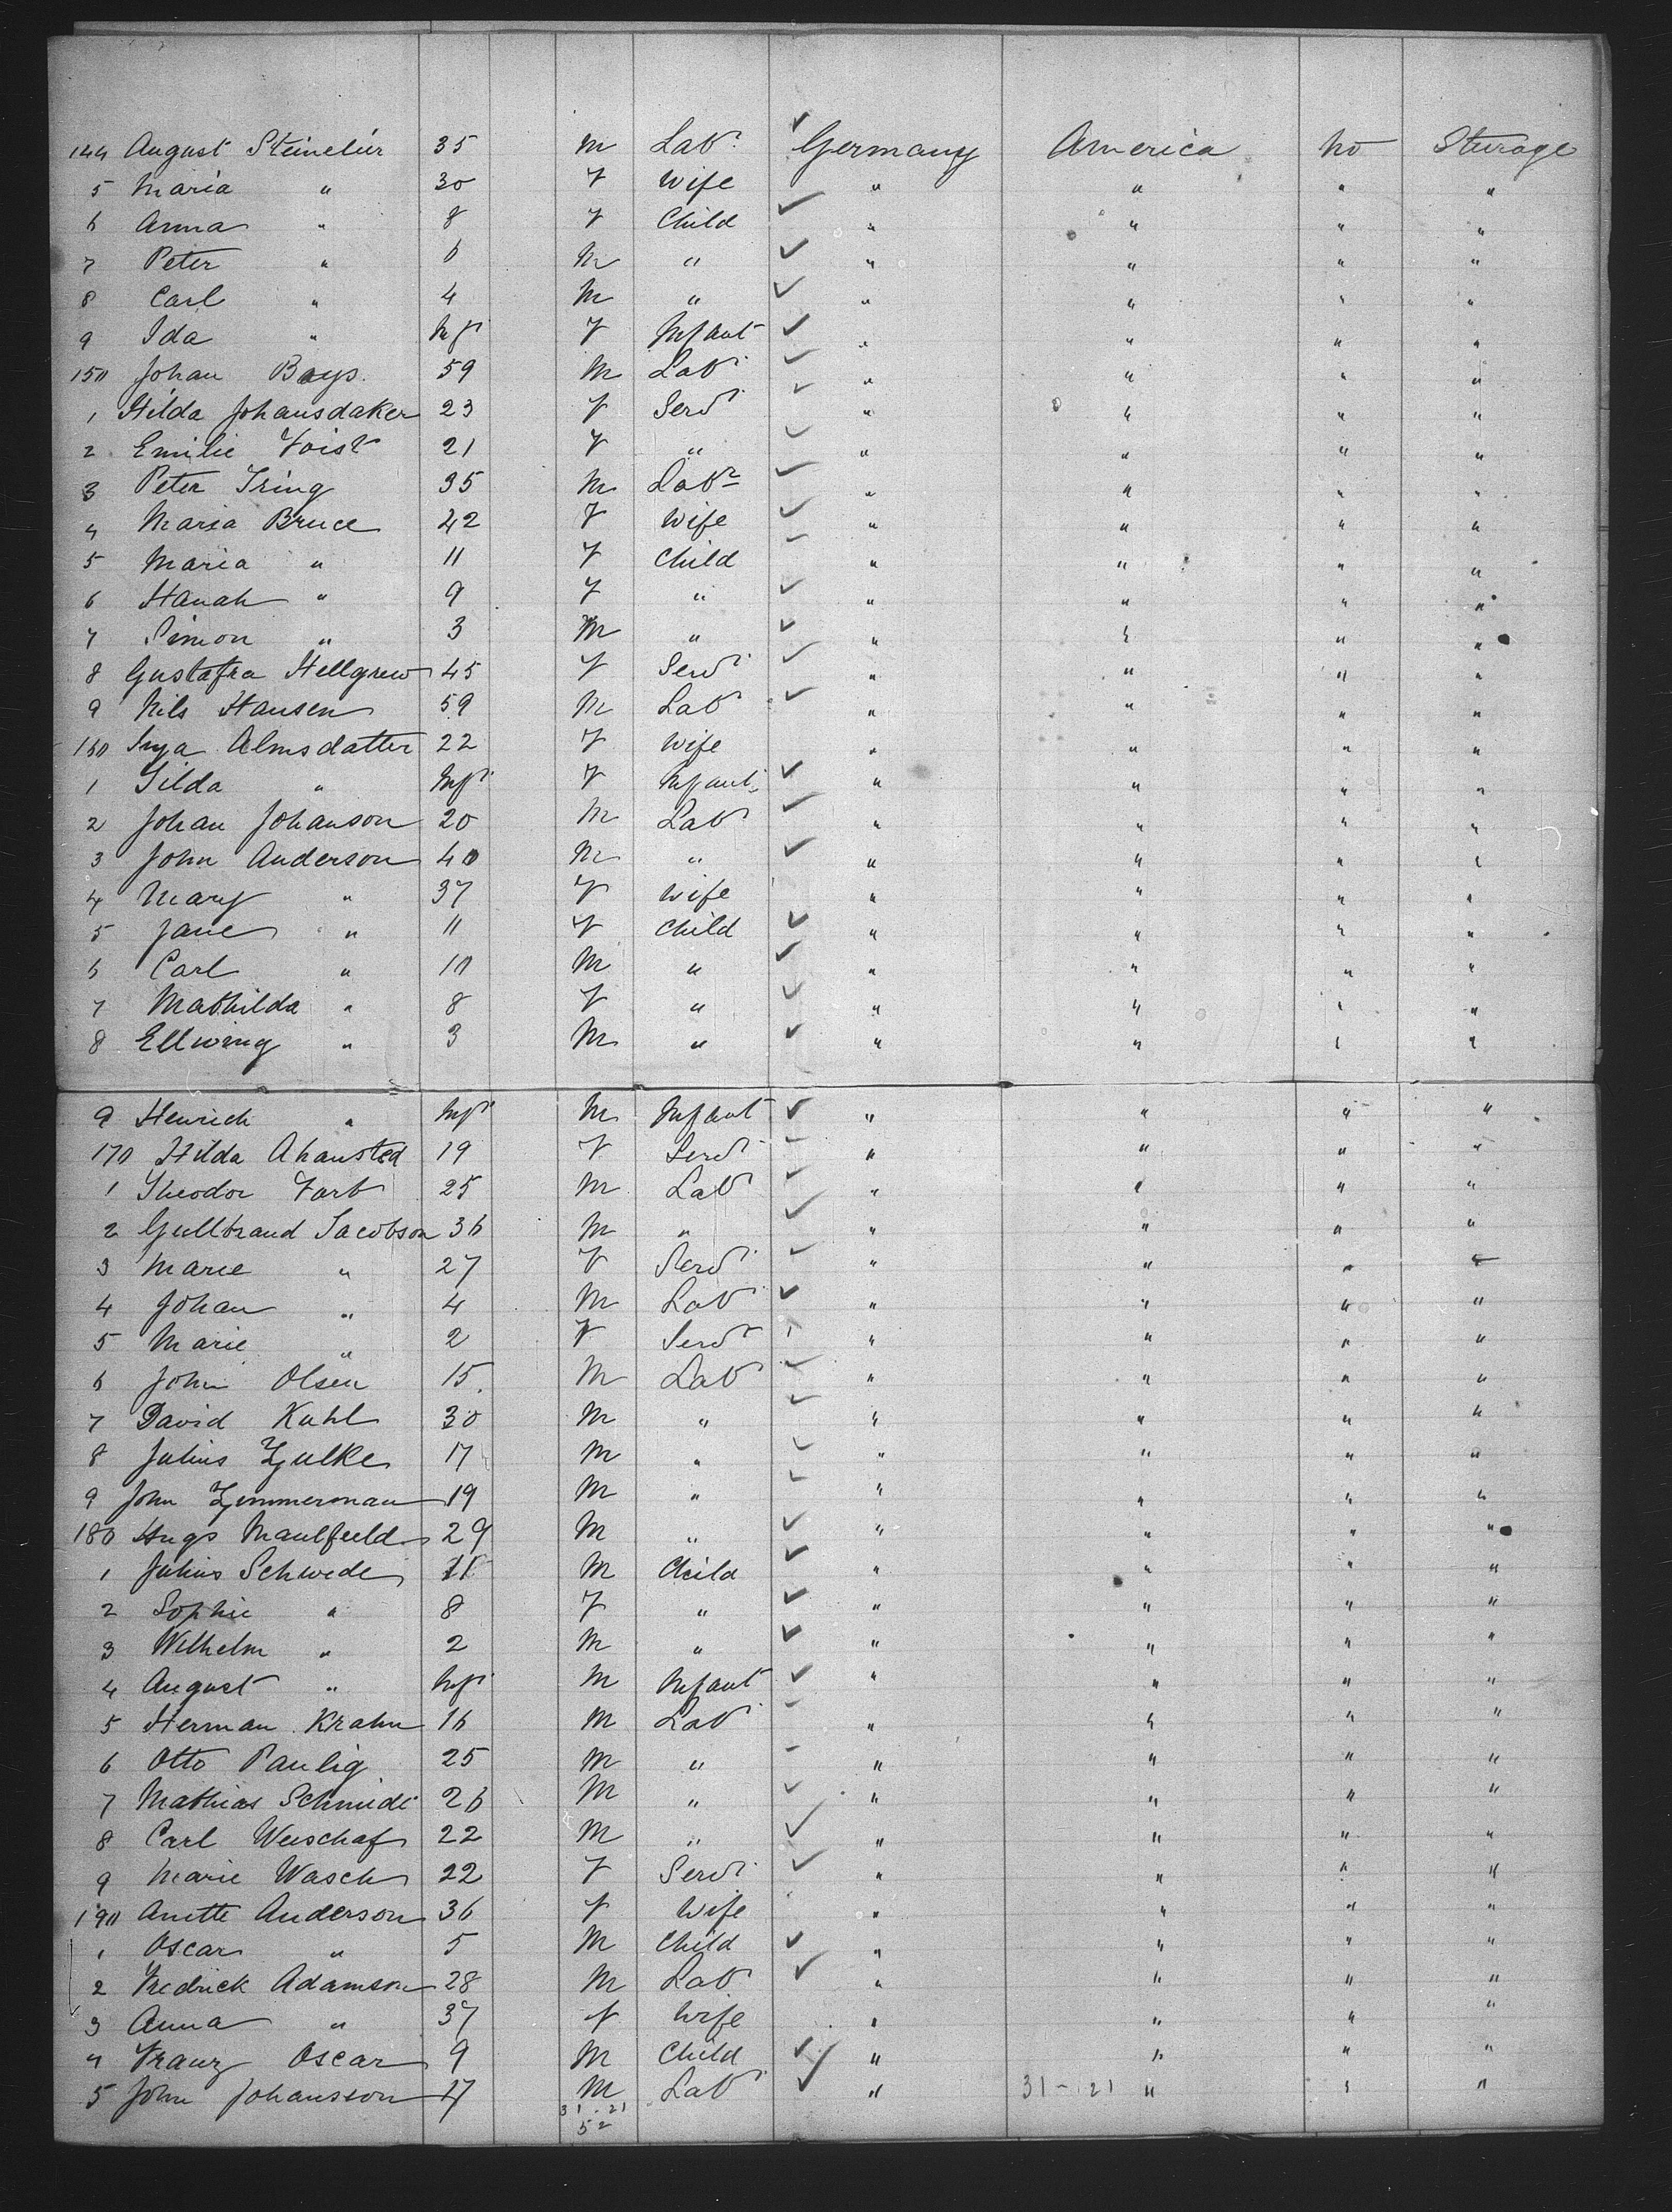 144 August Steinelür 35 M Lab. Germany America No Sturage
5 Maria " 30 F Wife " " " "
6 Anna " 8 F Child " " " "
7 Peter " 6 M " " " " "
8 Carl " 4 M " " " " "
9 Ida " Inft F Infant " " " "
150 Johan Boys 59 M Labr " " " "
1 Hilda Johansdaker 23 F Servt " " " "
2 Emilie Voist 21 F " " " " "
3 Peter Iring 35 M Labr " " " "
4 Maria Bruce 42 F Wife " " " "
5 Maria " 11 F Child " " " "
6 Hanah " 9 F " " " " "
7 Simon " 3 M " " " " "
8 Gustafva Hellgrew 45 F Servt " " " "
9 Nils Hansen 59 M Labr " " " "
160 Inga Almsdatter 22 F Wife " " " "
1 Gilda " Inft F Infant " " " "
2 Johan Johanson 20 M Labr " " " "
3 John Anderson 40 M " " " " "
4 Mary " 37 F Wife " " " "
5 Jane " 11 F Child " " " "
6 Carl " 10 M " " " " "
7 Mathilda " 8 F " " " " "
8 Ellwing " 3 M " " " " "
9 Henrich " Inft M Infant " " " "
170 Hilda Ahansted 19 F Servt " " " "
1 Theodor Vorb 25 M Labr " " " "
2 Gullbrand Jacobson 36 M " " " " "
3 Marie " 27 F Servt " " " "
4 Johan " 4 M Labr " " " "
5 Marie " 2 F Servt " " " "
6 John Olsen 15 M Labr " " " "
7 David Kuhl 30 M " " " " "
8 Julius Zulke 17 M " " " " "
9 John Zimmerman 19 M " " " " "
180 Hugo Maulfeeld 29 M " " " " "
1 Julius Schwede 11 M Child " " " "
2 Sophie " 8 F " " " " "
3 Wilhelm " 2 M " " " " "
4 August " Inft M Infant " " " "
5 Herman Krahn 16 M Labr " " " "
6 Otto Paulig 25 M " " " " "
7 Mathias Schmidt 26 M " " " " "
8 Carl Weischaf 22 M " " " " "
9 Marie Wasch 22 F Servt " " " "
190 Anette Anderson 36 F Wife " " " "
1 Oscar " 5 M Child " " " "
2 Fredrick Adamson 28 M Labr " " " "
3 Anna " 37 F Wife " " " "
4 Franz Oscar 9 M Child " " " "
5 John Johansson 17 M Labr " 31-21 " " "
31.21
52